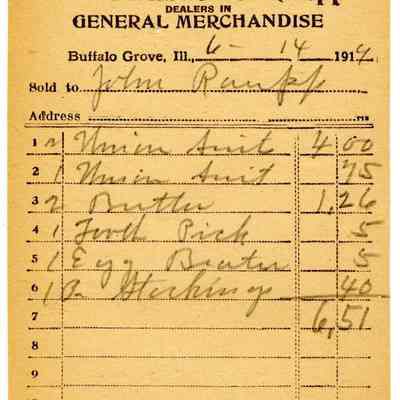 DEALERS IN
GENERAL MERCHANDISE
Buffalo Grove, Ill., 6- 14 1914
Sold to John Raupp
Address
1 2 Union Suit 4 00
2 1 Union Suit 75
3 2 Butter 1.26
4 1 Tooth Pick 5
5 1 Egg Beater 5
6 1 Pr Stockings 40
7 6,51
8